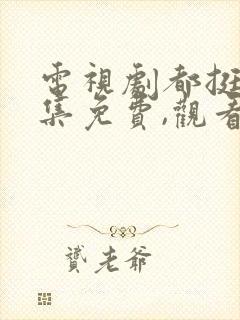 電視劇都挺
集免費,觀看
老爺